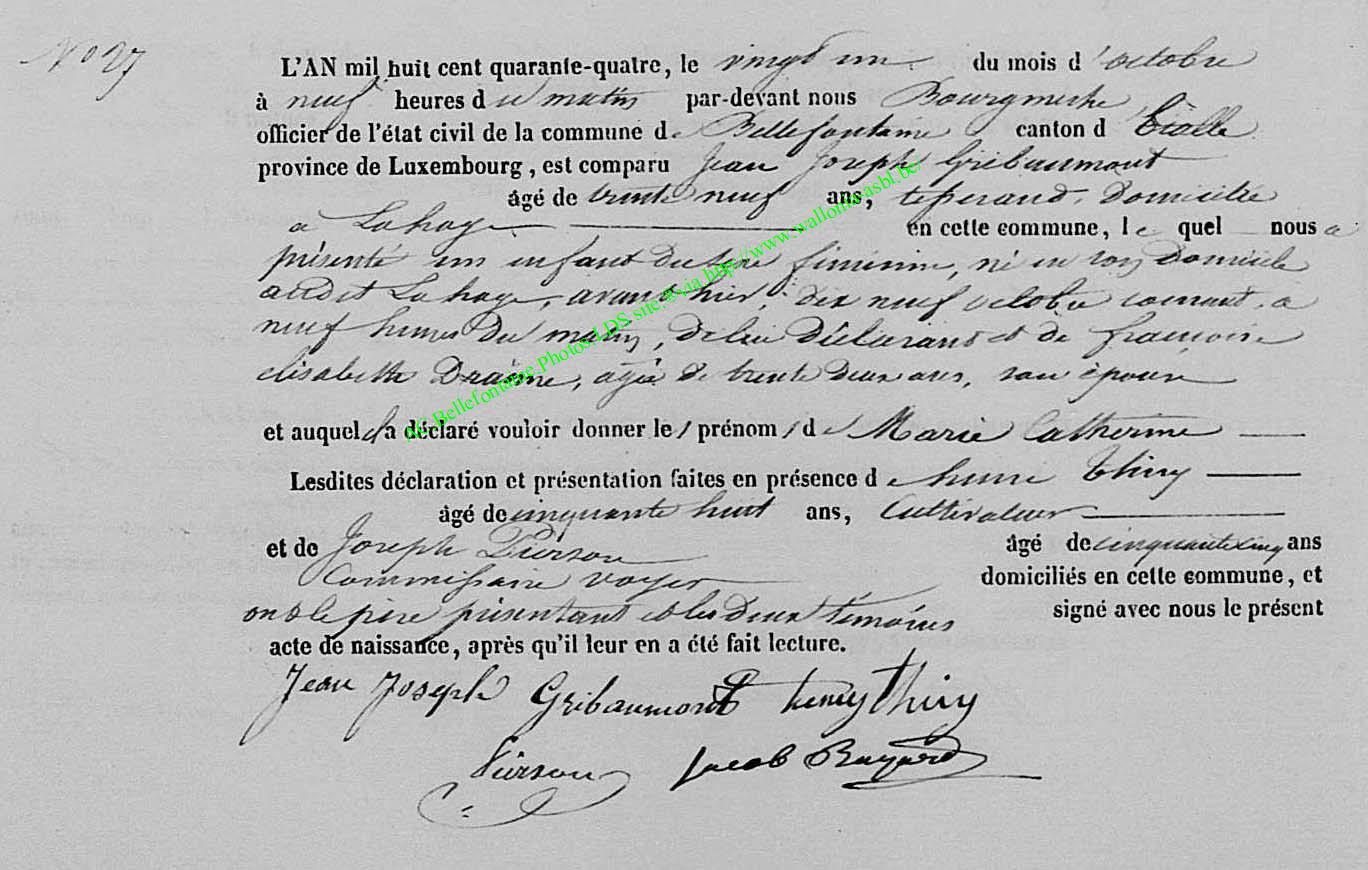 No 27
L'AN mil huit cent quarante-quatre, le vingt un du mois d'octobre
à neuf heures du matin par-devant nous Bourgmestre
officier de l'état civil de la commune de Bellefontaine canton d'Etalle
province de Luxembourg, est comparu Jean Joseph Gribaumont
âgé de trente neuf ans, tisserand, domicilié
à Lahage en cette commune, lequel nous a
présenté un enfant du sexe féminin, né en son domicile
audit Lahage, avant hier, dix neuf octobre courant, à
neuf heures du matin, de lui déclarant et de françoise
elisabeth Draime, âgée de trente deux ans, son épouse
et auquel il a déclaré vouloir donner le prénom de Marie Catherine
Lesdites déclaration et présentation faites en présence de henri thiry
âgé de cinquante huit ans, Cultivateur
et de Joseph Pierson âgé de cinquante cinq ans
Commissaire voyer domiciliés en cette commune, et
ont le père présentant et les deux témoins signé avec nous le présent
acte de naissance, après qu'il leur en a été fait lecture.
Jean Joseph Gribaumont henry thiry
Pierson Jacob Bayard
AC.Bellefontaine_Photos.LDS site © via http://www.wallonia-asbl.be/